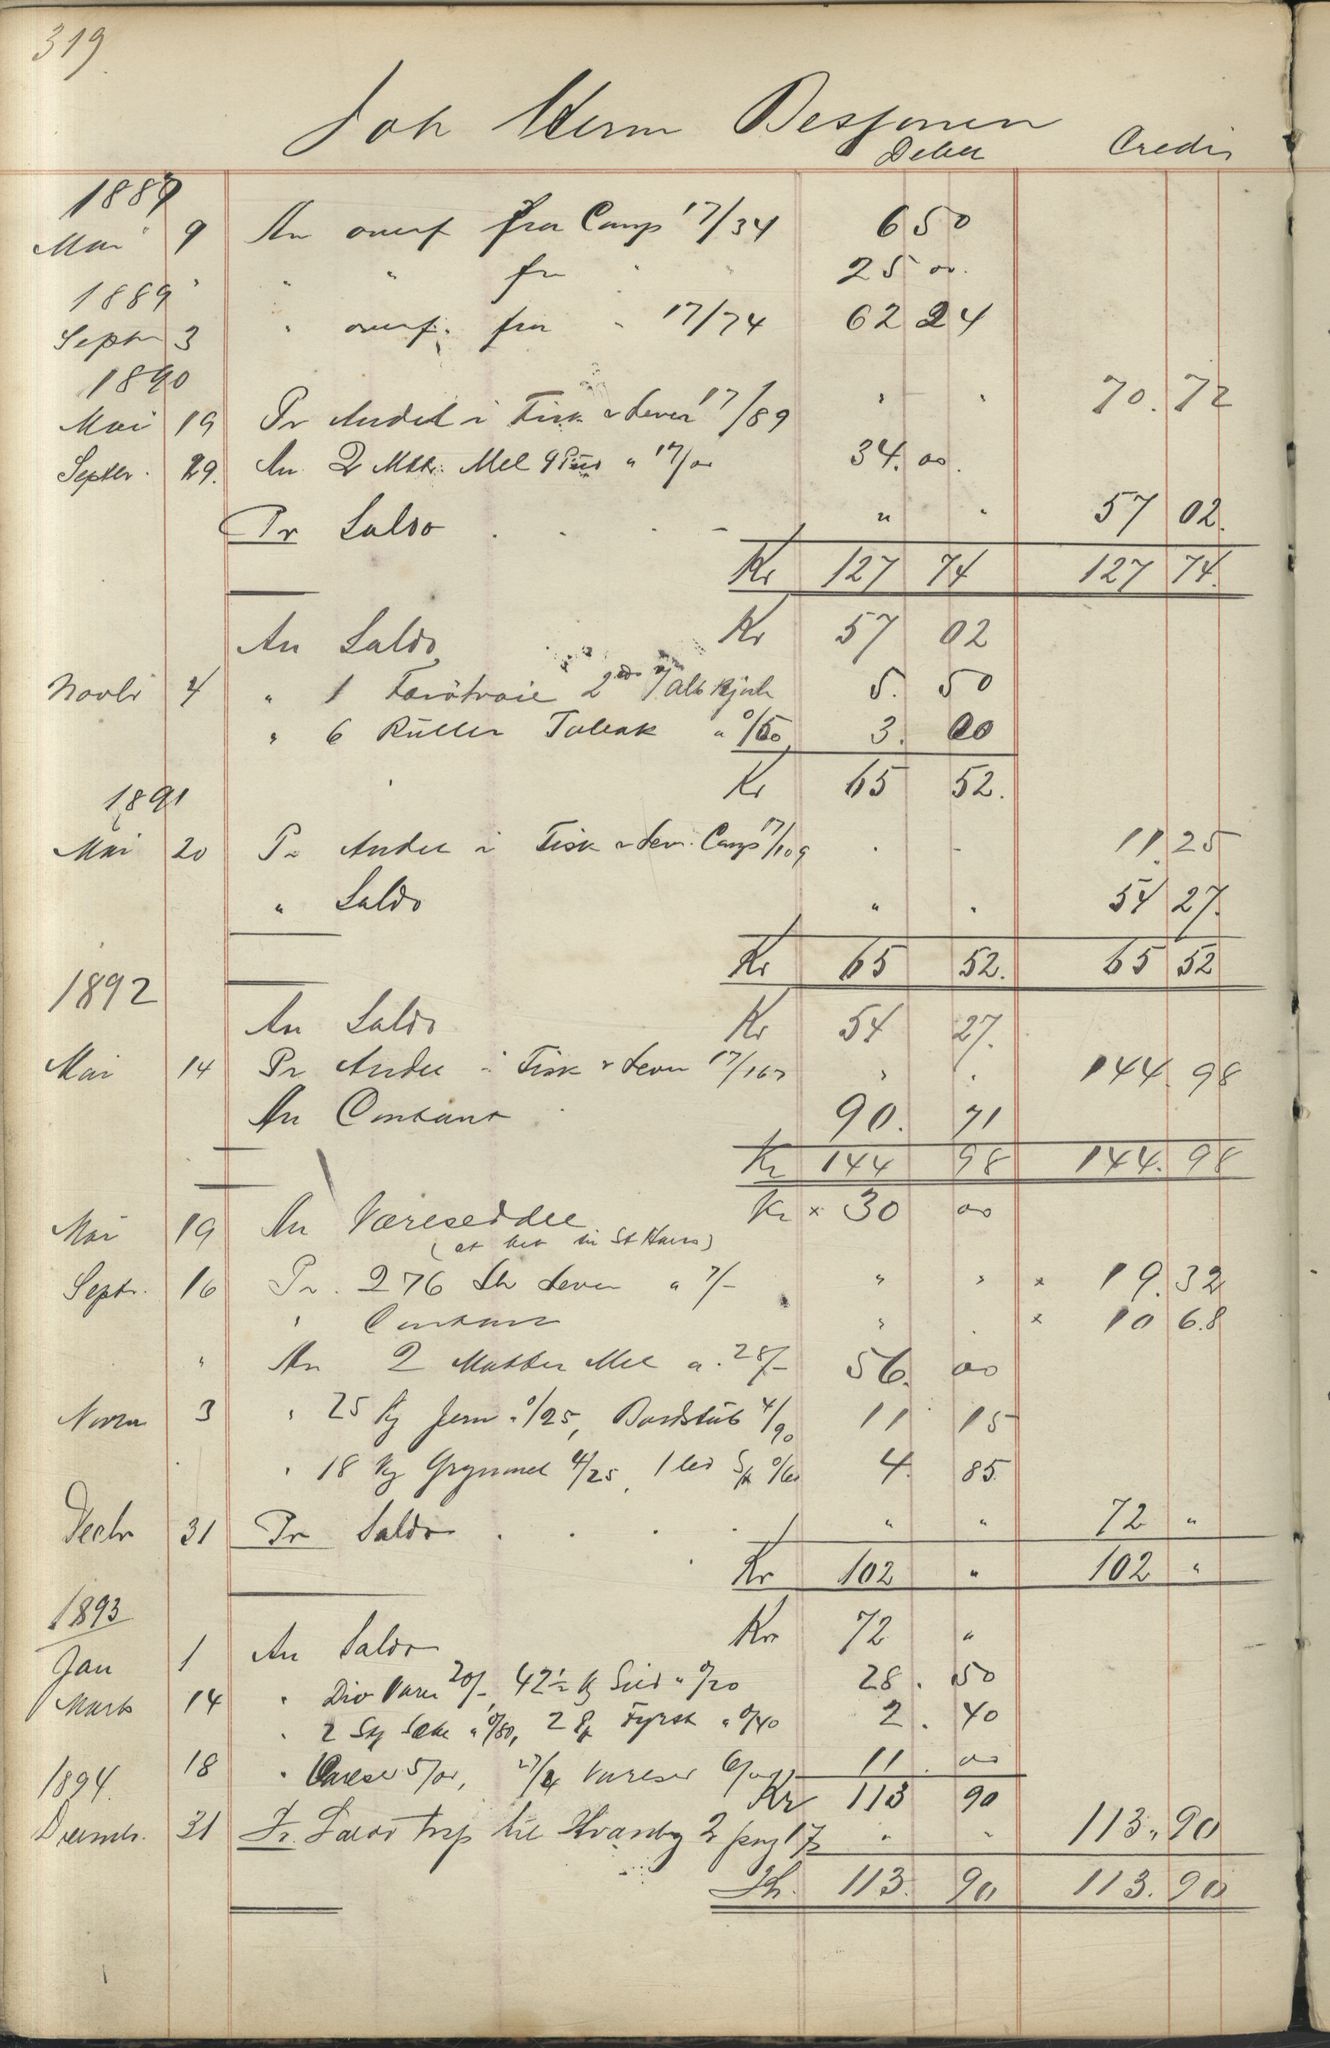 319
Joh Herm Desfonen
Debet Credit
1889
Mai 9 An overf fra Camp 17/34 6 50
" " fra " " 25 00.
1889
Septr 3 " overf. fra " 17/74 62 24
1890
Mai 19 Pr Andel i Fisk & Lever 17/89 " " 70. 72
Septbr. 29. An 2 Mtt. Mel " 17/00 34. 00.
Pr Saldo . . . - " " 57 02.
Kr 127 74 127 74.
An Saldo Kr 57 02
Novbr 4 " 1 Færötroie 5. 50
" 6 Ruller Tobak a 0/50 3. 00
Kr 65 52.
1891
Mai 20 Pr Andel i Fisk & Lev. Camp 17/109 " - 11. 25
" Saldo " " 54 27.
Kr 65 52. 65 52
1892
An Saldo Kr 54 27.
Mai 14 Pr Andel i Fisk & Lever 17/167 " " 144. 98
An Contant 90. 71
Kr 144 98 144. 98
Mai 19 An Vareseddel Kr x 30 00
( St Hans)
Septr. 16 Pr. 276 Lever a 7/- " " x 19. 32
" Contant " . x 10 68
" An 2 Matter Mel a. 28/- 56. 00
Novbr 3 " 25 Kg Jern a 0/25, 4/90 11 15
" 18 Kg Grynmel 4/25, 1 4. 85
Decbr 31 Pr Saldo . . . . " " 72 "
Kr 102 " 102 "
1893
Jan 1 An Saldo Kr 72 "
Marts 14 " Div Varer 20/-, 42½ Kg Sild a 0/20 28. 50
" 2 Sk Sæbe a 0/80, 2 Pk Fyrst a 0/40 2. 40
18 " Vareser 5/00, 27/4 Vareser 6/00 11. 00
1894. Kr 113 90
Decemb. 31 Pr. Saldo trsp til 2 pag 17 " " 113. 90
Kr. 113. 90 113. 90